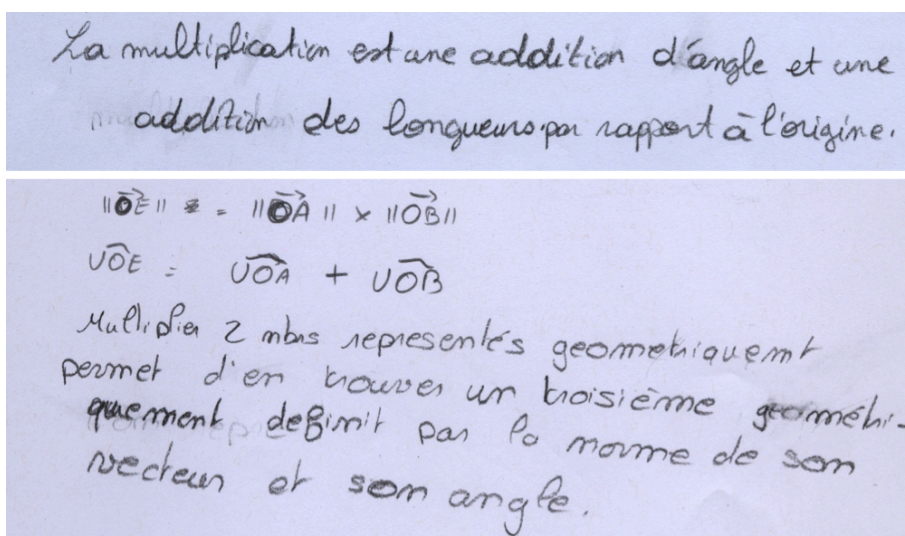 La multiplication est une addition d'angle et une
addition des longueurs par rapport à l'origine.
||OE|| = ||OA|| × ||OB||
UOE = UOA + UOB
Multiplier 2 nbrs representés geometriquemt
permet d'en trouver un troisième géométri-
quement definit par la norme de son
vecteur et son angle.